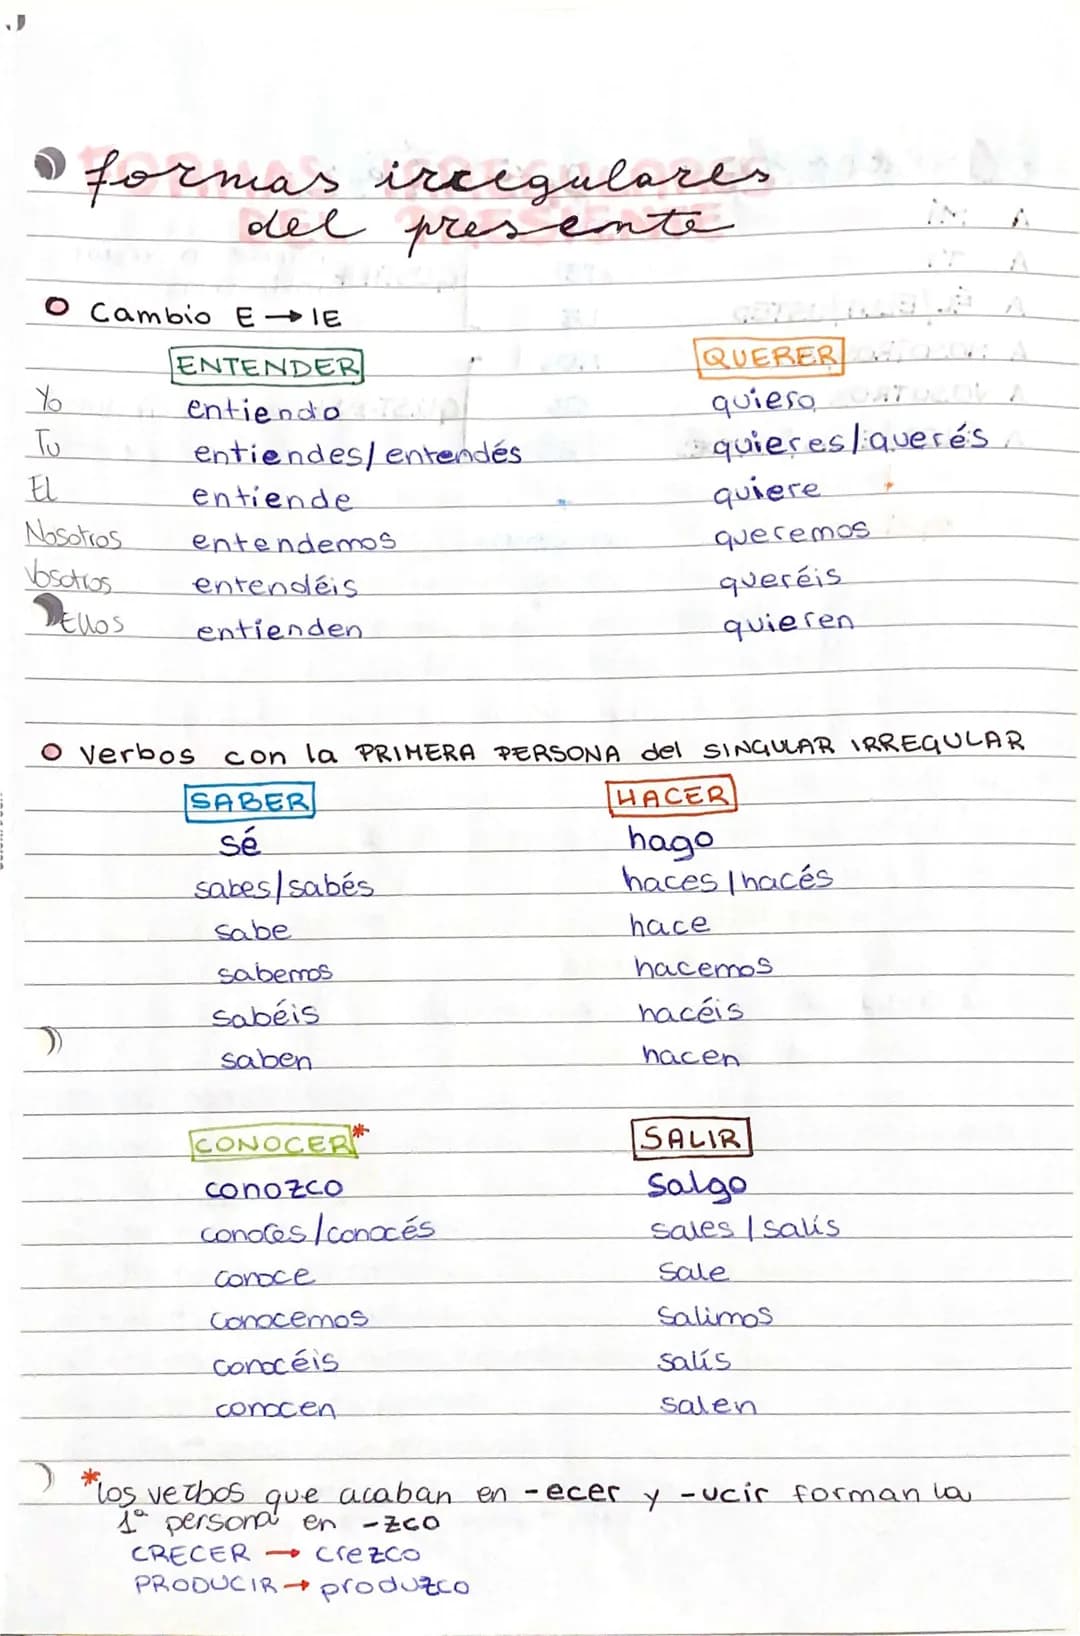 formas irregulares
del presente
Cambio E → IE
ENTENDER QUERER
Yo entiendo quiero
Tu entiendes/entendés quieres/querés
El entiende quiere
Nosotros entendemos queremos
Vosotros entendéis queréis
Ellos entienden quieren
Verbos con la PRIMERA PERSONA del SINGULAR IRREGULAR
SABER HACER
sé hago
sabes/sabés haces/hacés
sabe hace
sabemos hacemos
sabéis hacéis
saben hacen
CONOCER* SALIR
conozco salgo
conoces/conocés sales/salís
conoce sale
conocemos salimos
conocéis salís
conocen salen
*los verbos que acaban en -ecer y -ucir forman la
1ª persona en -zco
CRECER → crezco
PRODUCIR → produzco